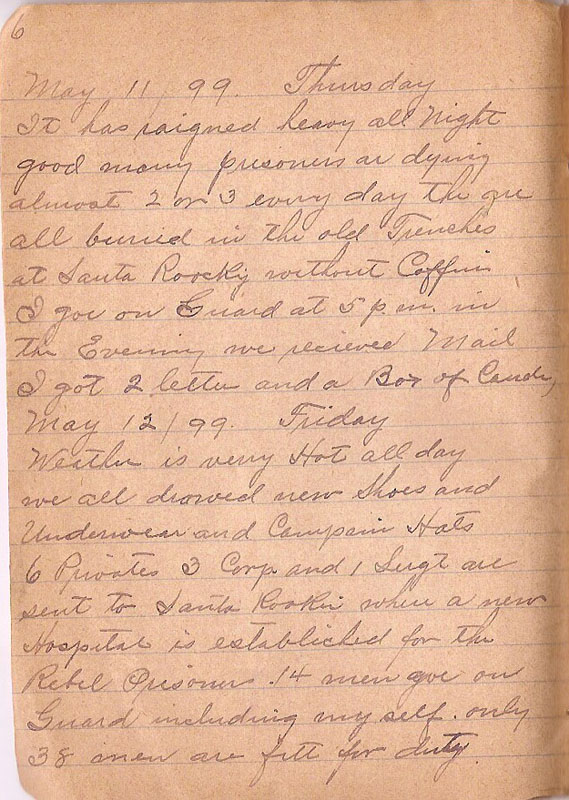 6
May 11/99. Thursday
It has raigned heavy all Night
good many prisoners ar dying
almost 2 or 3 every day the are
all burried in the old Trenches
at Santa Roocky without Coffin
I goe on Guard at 5 p.m. in
the Evening we recieved Mail
I got 2 letter and a Box of Candy
May 12/99. Friday
Weather is verry Hot all day
we all drowed new Shoes and
Underwear and Campain Hats
6 Privates 3 Corp and 1 Sergt are
sent to Santa Rookie where a new
Hospital is established for the
Rebel Prisoners. 14 men goe on
Guard including my self. only
38 men are fitt for duty.